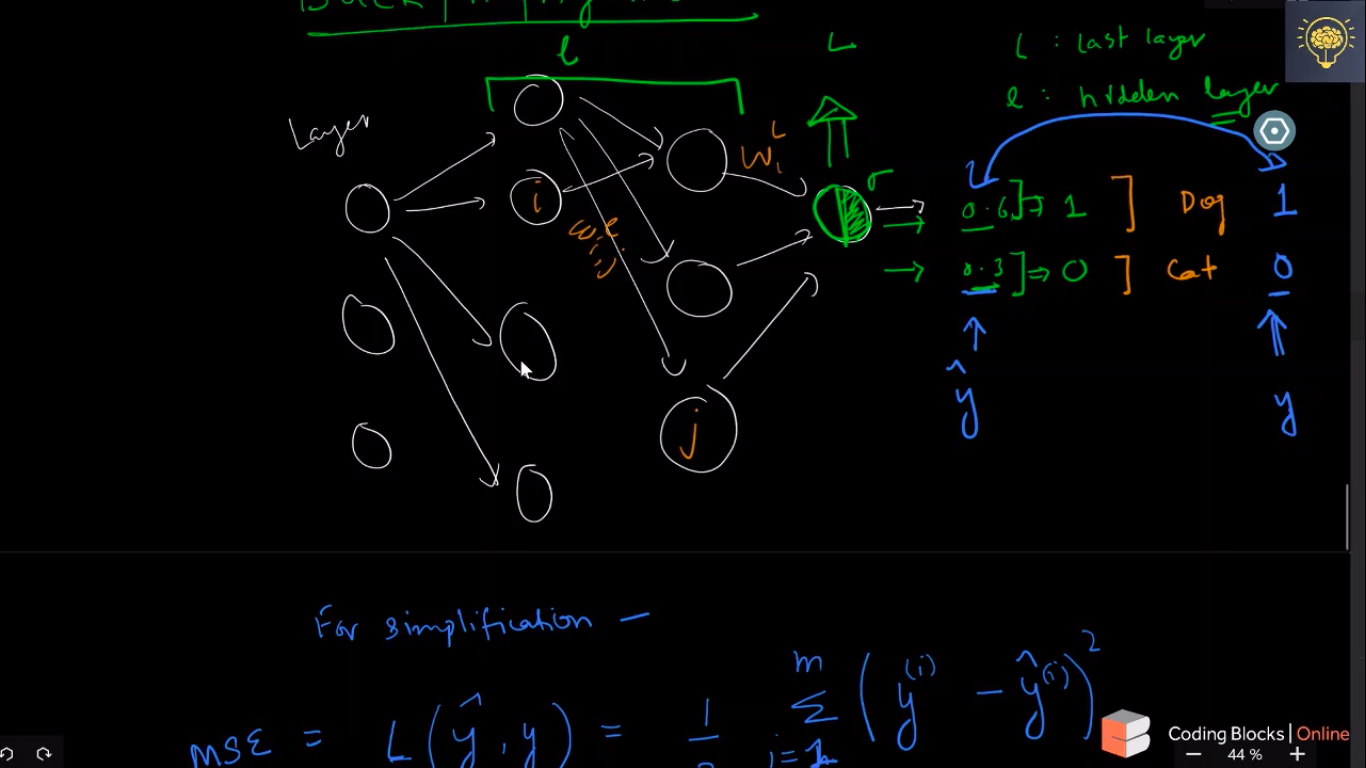 l
L
L : last layer
l : hidden layer
Layer
W₁ᴸ
i
Wᵢⱼˡ
σ
0.6] ⇒ 1 ] Dog 1
0.3] ⇒ 0 ] Cat 0
ŷ
y
j
For simplification —
MSE = L(ŷ, y) = 1 Σ m (y⁽ⁱ⁾ − ŷ⁽ⁱ⁾)²
i=1
Coding Blocks | Online
− 44 % +